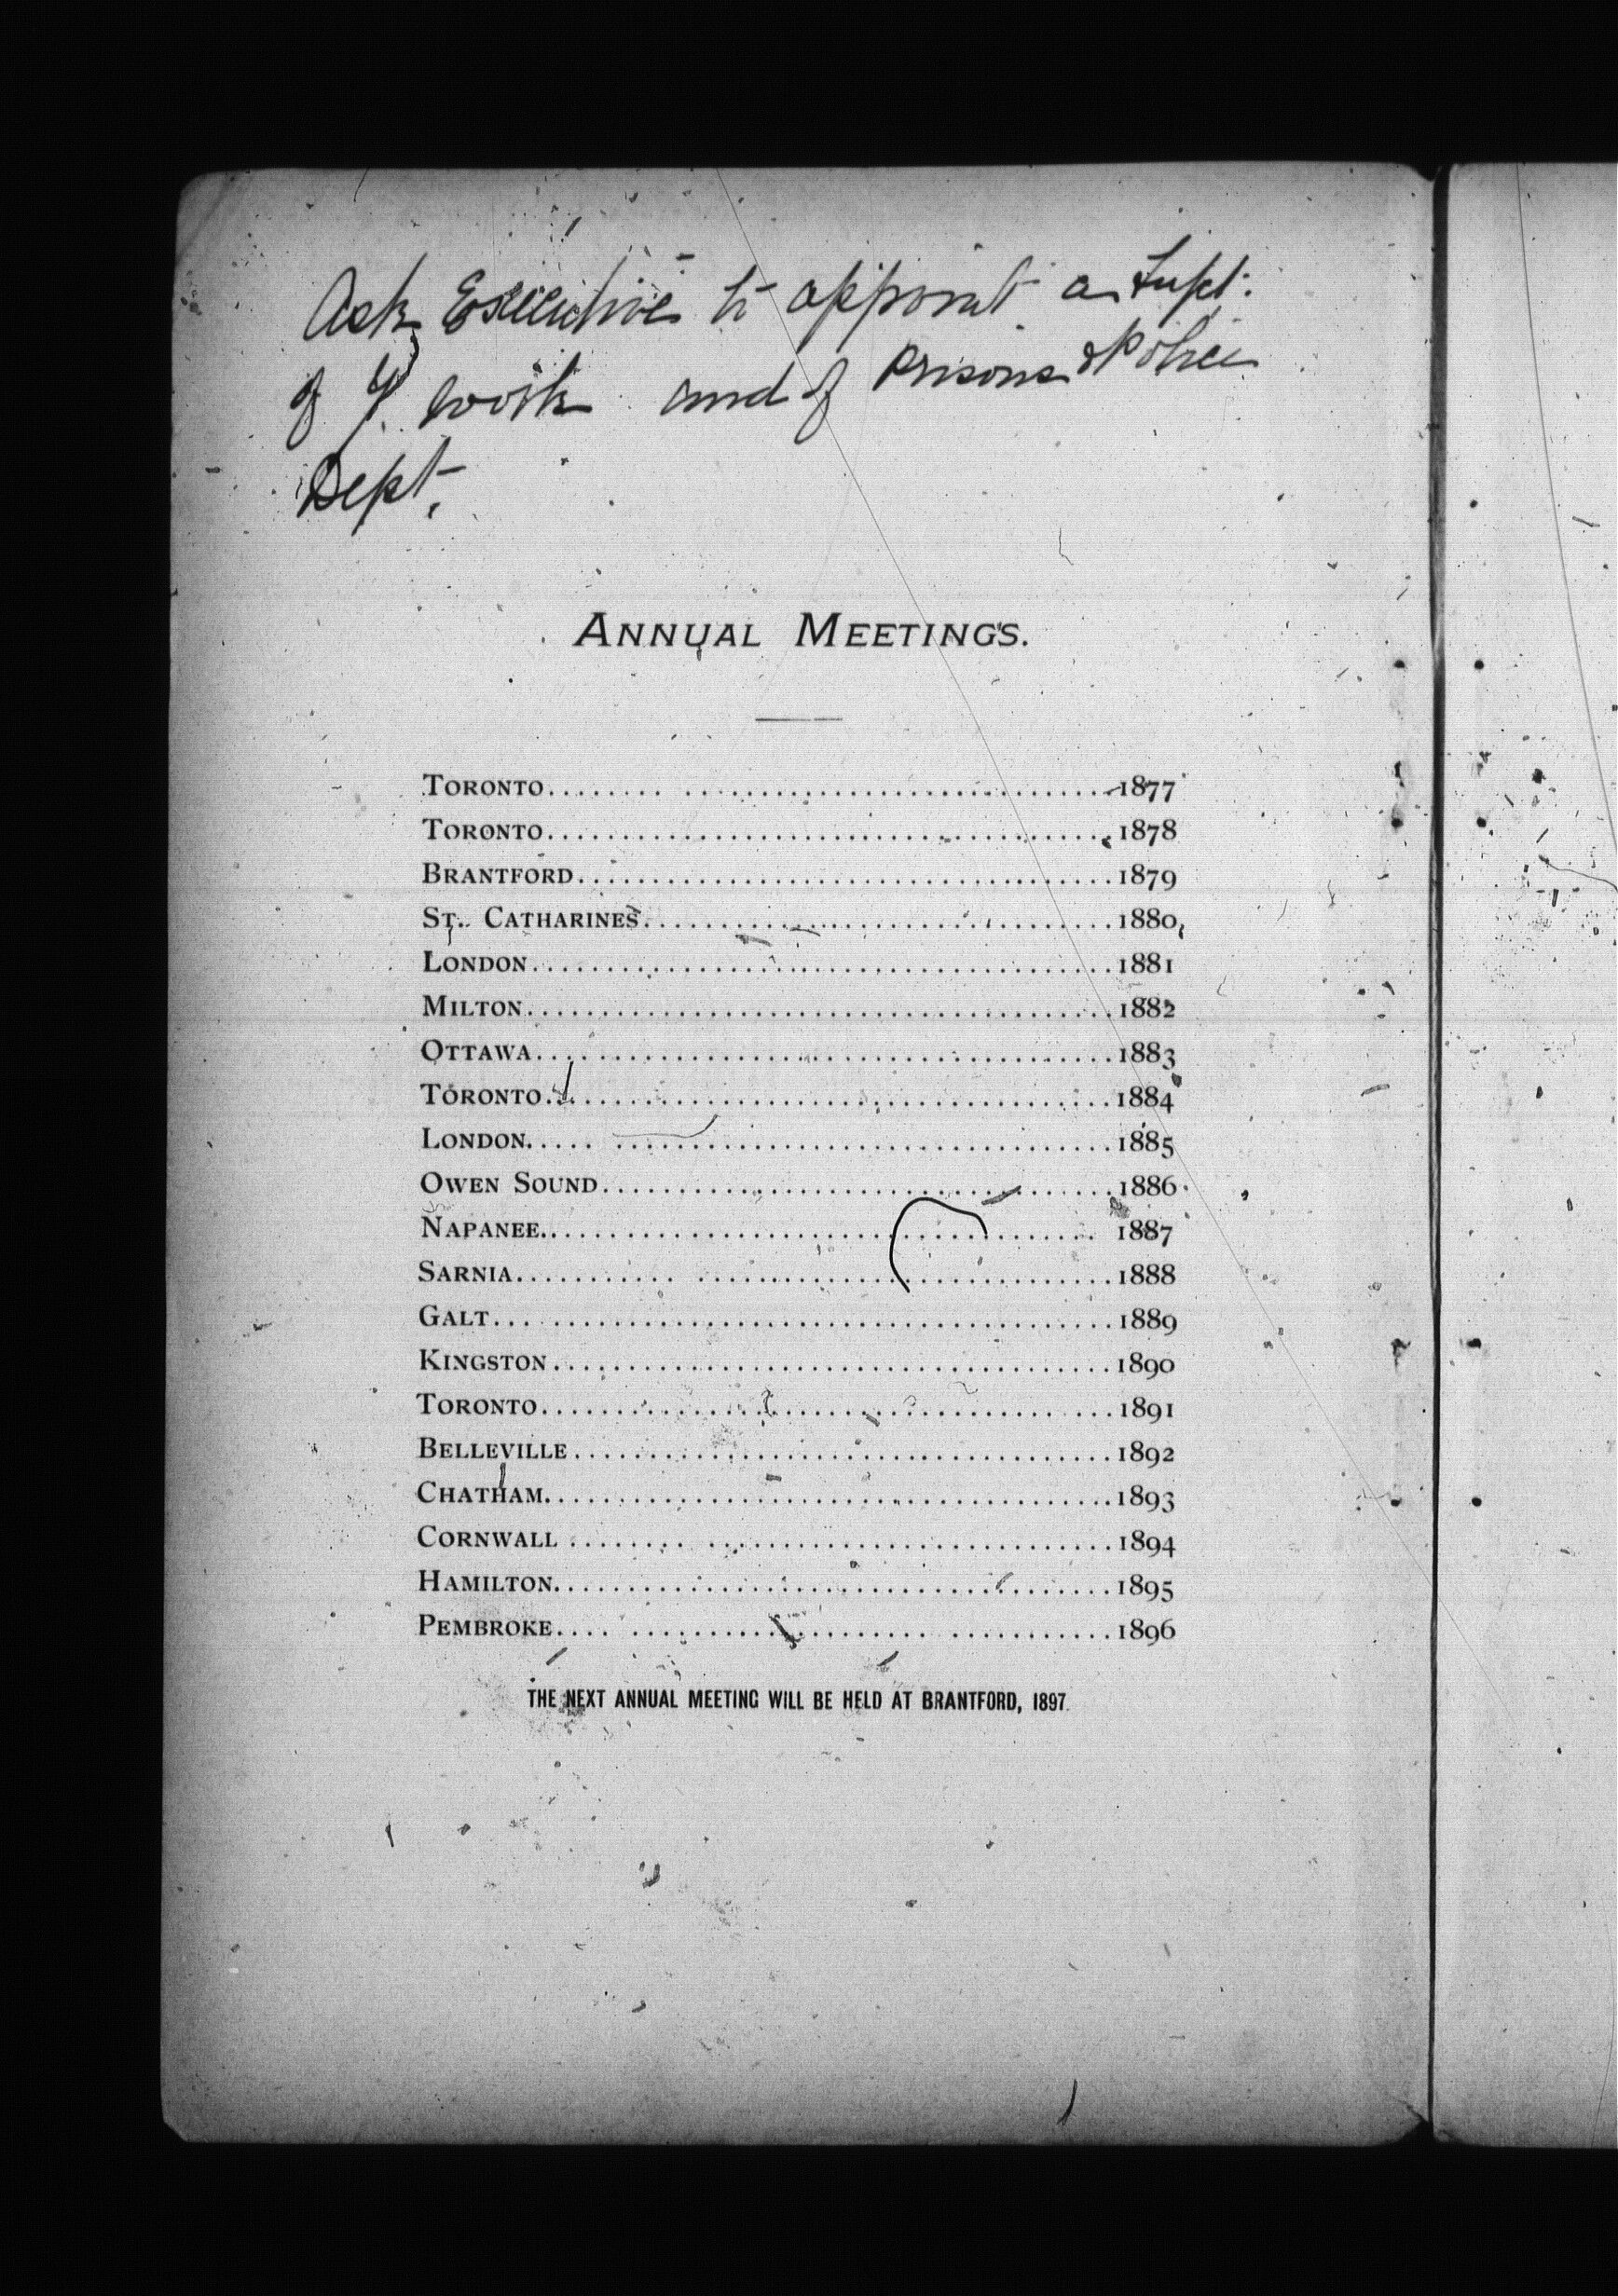 Ask Executive to appoint a Supt.
of Y. work and of Prisons & Police
Dept.
ANNUAL MEETINGS.
TORONTO........ .............................1877
TORONTO......................................1878
BRANTFORD....................................1879
ST. CATHARINES...............................1880
LONDON.......................................1881
MILTON.......................................1882
OTTAWA.......................................1883
TORONTO......................................1884
LONDON..... .................................1885
OWEN SOUND...................................1886
NAPANEE..................................... 1887
SARNIA........... ...........................1888
GALT... .....................................1889
KINGSTON.....................................1890
TORONTO......................................1891
BELLEVILLE...................................1892
CHATHAM......................................1893
CORNWALL ........ ...........................1894
HAMILTON.....................................1895
PEMBROKE.... .................... ...........1896
THE NEXT ANNUAL MEETING WILL BE HELD AT BRANTFORD, 1897.